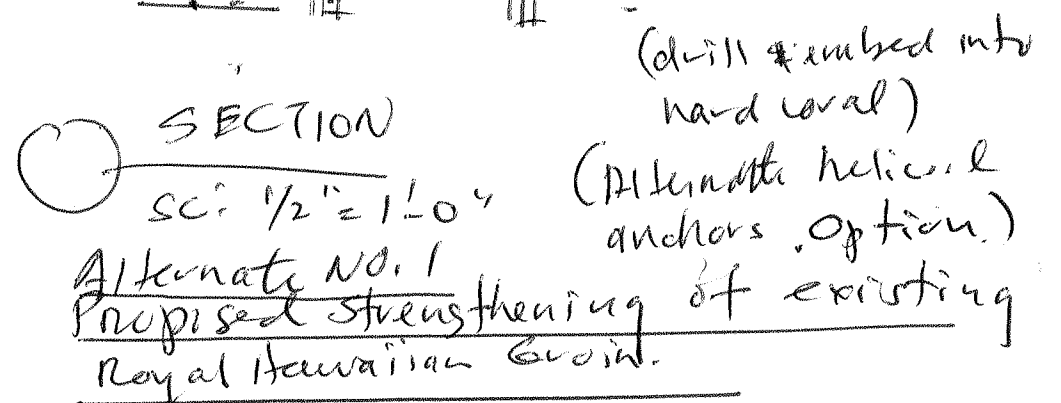 (drill & embed into
hard coral)
SECTION
SC: 1/2" = 1'-0"
(Alternate helical
anchors. Option.)
Alternate No. 1
Proposed strengthening of existing
Royal Hawaiian Groin.